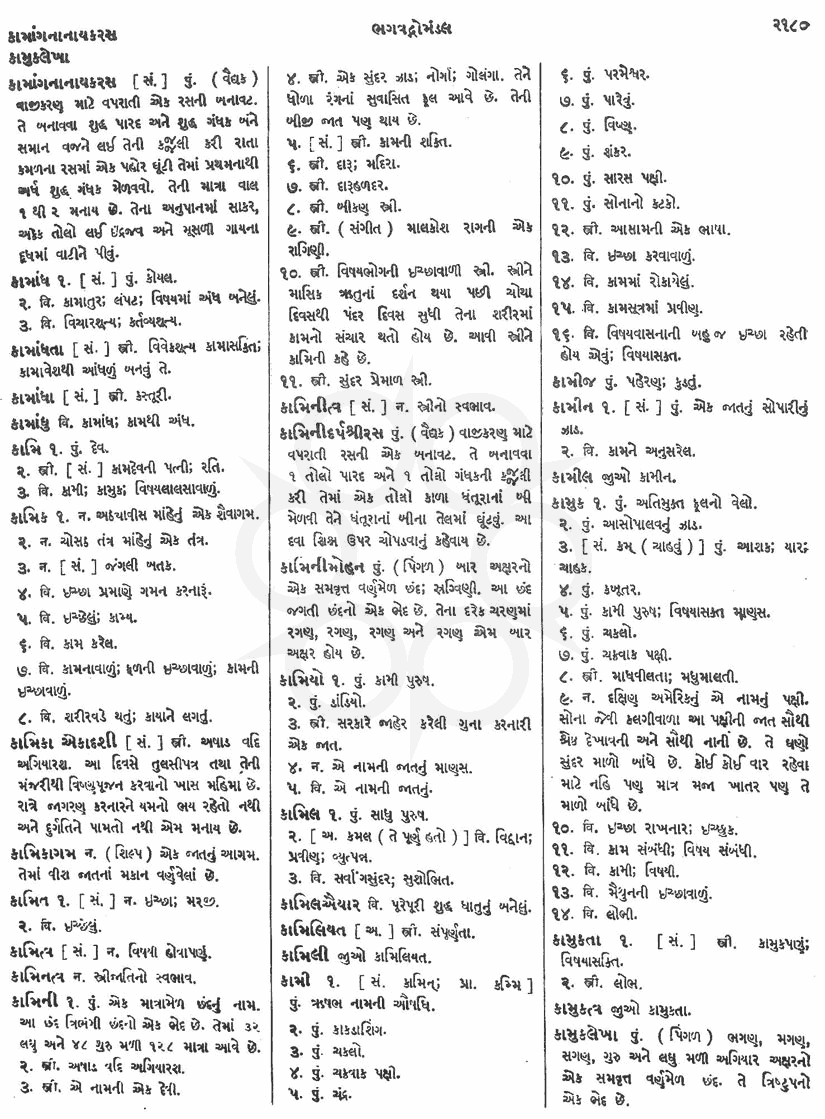 કામાંગનાનાયકરસ
કામુકલેખા
ભગવદ્ગોમંડલ
૨૧૮૦
કામાંગનાનાયકરસ [ સં. ] પું. (વૈદ્યક)
વાજીકરણ માટે વપરાતી એક રસની બનાવટ.
તે બનાવવા શુદ્ધ પારદ અને શુદ્ધ ગંધક બંને
સમાન વજને લઈ તેની કજ્જલી કરી રાતા
કમળના રસમાં એક પહોર ઘૂંટી તેમાં પ્રથમનાથી
અર્ધ શુદ્ધ ગંધક મેળવવો. તેની માત્રા વાલ
૧ થી ૨ મનાય છે. તેના અનુપાનમાં સાકર,
અકેક તોલો લઈ ઇંદ્રજવ અને મૂસળી ગાયના
દૂધમાં વાટીને પીવું.
કામાંધ ૧. [ સં. ] પું. કોયલ.
૨. વિ. કામાતુર; લંપટ; વિષયમાં અંધ બનેલું.
૩. વિ. વિચારશૂન્ય; કર્તવ્યશૂન્ય.
કામાંધતા [ સં. ] સ્ત્રી. વિવેકશૂન્ય કામાસક્તિ;
કામાવેશથી આંધળું બનવું તે.
કામાંધા [ સં. ] સ્ત્રી. કસ્તૂરી.
કામાંધુ વિ. કામાંધ; કામથી અંધ.
કામિ ૧. પું. દેવ.
૨. સ્ત્રી. [ સં. ] કામદેવની પત્ની; રતિ.
૩. વિ. કામી; કામુક; વિષયલાલસાવાળું.
કામિક ૧. ન. અઠ્યાવીસ માંહેનું એક શૈવાગમ.
૨. ન. ચોસઠ તંત્ર માંહેનું એક તંત્ર.
૩. ન. [ સં. ] જંગલી બતક.
૪. વિ. ઇચ્છા પ્રમાણે ગમન કરનારું.
૫. વિ. ઇચ્છેલું; કામ્ય.
૬. વિ. કામ કરેલ.
૭. વિ. કામનાવાળું; ફળની ઇચ્છાવાળું; કામની
ઇચ્છાવાળું.
૮. વિ. શરીરવડે થતું; કાયાને લગતું.
કામિકા એકાદશી [ સં. ] સ્ત્રી. અષાડ વદિ
અગિયારશ. આ દિવસે તુલસીપત્ર તથા તેની
મંજરીથી વિષ્ણુપૂજન કરવાનો ખાસ મહિમા છે.
રાત્રે જાગરણ કરનારને યમનો ભય રહેતો નથી
અને દુર્ગતિને પામતો નથી એમ મનાય છે.
કામિકાગમ ન. ( શિલ્પ ) એક જાતનું આગમ.
તેમાં વીશ જાતનાં મકાન વર્ણવેલાં છે.
કામિત ૧. [ સં. ] ન. ઇચ્છા; મરજી.
૨. વિ. ઇચ્છેલું.
કામિત્વ [ સં. ] ન. વિષયી હોવાપણું.
કામિનત્વ ન. સ્ત્રીજાતિનો સ્વભાવ.
કામિની ૧. પું. એક માત્રામેળ છંદનું નામ.
આ છંદ ત્રિભંગી છંદનો એક ભેદ છે. તેમાં ૩૨
લઘુ અને ૪૮ ગુરુ મળી ૧૨૮ માત્રા આવે છે.
૨. સ્ત્રી. અષાડ વદિ અગિયારશ.
૩. સ્ત્રી. એ નામની એક દેવી.
૪. સ્ત્રી. એક સુંદર ઝાડ; નોર્ગા; ગોલંગા. તેને
ધોળા રંગનાં સુવાસિત ફૂલ આવે છે. તેની
બીજી જાત પણ થાય છે.
૫. [ સં. ] સ્ત્રી. કામની શક્તિ.
૬. સ્ત્રી. દારૂ; મદિરા.
૭. સ્ત્રી. દારૂહળદર.
૮. સ્ત્રી. બીકણ સ્ત્રી.
૯. સ્ત્રી. ( સંગીત ) માલકોશ રાગની એક
રાગિણી.
૧૦. સ્ત્રી. વિષયભોગની ઇચ્છાવાળી સ્ત્રી. સ્ત્રીને
માસિક ઋતુનાં દર્શન થયા પછી ચોથા
દિવસથી પંદર દિવસ સુધી તેના શરીરમાં
કામનો સંચાર થતો હોય છે. આવી સ્ત્રીને
કામિની કહે છે.
૧૧. સ્ત્રી. સુંદર પ્રેમાળ સ્ત્રી.
કામિનીત્વ [ સં. ] ન. સ્ત્રીનો સ્વભાવ.
કામિનીદર્પઘ્નીરસ પું. ( વૈદ્યક ) વાજીકરણ માટે
વપરાતી રસની એક બનાવટ. તે બનાવવા
૧ તોલો પારદ અને ૧ તોલો ગંધકની કજ્જલી
કરી તેમાં એક તોલો કાળા ધંતૂરાનાં બી
મેળવી તેને ધંતૂરાનાં બીના તેલમાં ઘૂંટવું. આ
દવા શિશ્ન ઉપર ચોપડવાનું કહેવાય છે.
કામિનીમોહન પું. ( પિંગળ ) બાર અક્ષરનો
એક સમવૃત્ત વર્ણમેળ છંદ; સ્રગ્વિણી. આ છંદ
જગતી છંદનો એક ભેદ છે. તેના દરેક ચરણમાં
રગણ, રગણ, રગણ અને રગણ એમ બાર
અક્ષર હોય છે.
કામિયો ૧. પું. કામી પુરુષ.
૨. પું. ડાંડિયો.
૩. સ્ત્રી. સરકારે જાહેર કરેલી ગુના કરનારી
એક જાત.
૪. ન. એ નામની જાતનું માણસ.
૫. વિ. એ નામની જાતનું.
કામિલ ૧. પું. સાધુ પુરુષ.
૨. [ અ. કમલ ( તે પૂર્ણ હતો ) ] વિ. વિદ્વાન;
પ્રવીણ; વ્યુત્પન્ન.
૩. વિ. સર્વાંગસુંદર; સુશોભિત.
કામિલઐયાર વિ. પૂરેપૂરી શુદ્ધ ધાતુનું બનેલું.
કામિલિયત [ અ. ] સ્ત્રી. સંપૂર્ણતા.
કામિલી જુઓ કામિલિયત.
કામી ૧. [ સં. કામિન્; પ્રા. કમ્મિ ]
પું. ઋષભ નામની ઔષધિ.
૨. પું. કાકડાશિંગ.
૩. પું. ચકલો.
૪. પું. ચક્રવાક પક્ષી.
૫. પું. ચંદ્ર.
૬. પું. પરમેશ્વર.
૭. પું. પારેવું.
૮. પું. વિષ્ણુ.
૯. પું. શંકર.
૧૦. પું. સારસ પક્ષી.
૧૧. પું. સોનાનો કટકો.
૧૨. સ્ત્રી. આસામની એક ભાષા.
૧૩. વિ. ઇચ્છા કરવાવાળું.
૧૪. વિ. કામમાં રોકાયેલું.
૧૫. વિ. કામસૂત્રમાં પ્રવીણ.
૧૬. વિ. વિષયવાસનાની બહુ જ ઇચ્છા રહેતી
હોય એવું; વિષયાસક્ત.
કામીજ પું. પહેરણ; કુડતું.
કામીન ૧. [ સં. ] પું. એક જાતનું સોપારીનું
ઝાડ.
૨. વિ. કામને અનુસરેલ.
કામીલ જુઓ કામીન.
કામુક ૧. પું. અતિમુક્ત ફૂલનો વેલો.
૨. પું. આસોપાલવનું ઝાડ.
૩. [ સં. કમ્ ( ચાહવું ) ] પું. આશક; યાર;
ચાહક.
૪. પું. કબૂતર.
૫. પું. કામી પુરુષ; વિષયાસક્ત માણસ.
૬. પું. ચકલો.
૭. પું. ચક્રવાક પક્ષી.
૮. સ્ત્રી. માધવીલતા; મધુમાલતી.
૯. ન. દક્ષિણ અમેરિકનું એ નામનું પક્ષી.
સોના જેવી કલગીવાળા આ પક્ષીની જાત સૌથી
શ્રેષ્ઠ દેખાવની અને સૌથી નાની છે. તે ઘણો
સુંદર માળો બાંધે છે. કોઈ કોઈ વાર રહેવા
માટે નહિ પણ માત્ર મજા ખાતર પણ તે
માળો બાંધે છે.
૧૦. વિ. ઇચ્છા રાખનાર; ઇચ્છુક.
૧૧. વિ. કામ સંબંધી; વિષય સંબંધી.
૧૨. વિ. કામી; વિષયી.
૧૩. વિ. મૈથુનની ઇચ્છાવાળું.
૧૪. વિ. લોભી.
કામુકતા ૧. [ સં. ] સ્ત્રી. કામુકપણું;
વિષયાસક્તિ.
૨. સ્ત્રી. લોભ.
કામુકત્વ જુઓ કામુકતા.
કામુકલેખા પું. ( પિંગળ ) ભગણ, મગણ,
સગણ, ગુરુ અને લઘુ મળી અગિયાર અક્ષરનો
એક સમવૃત્ત વર્ણમેળ છંદ. તે ત્રિષ્ટુપનો
એક ભેદ છે.